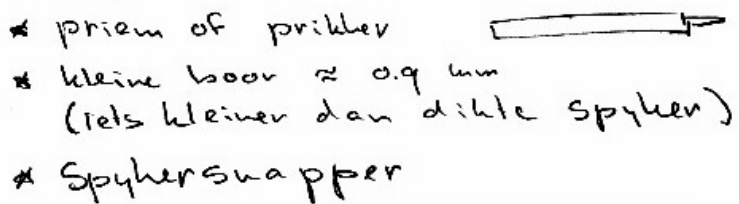 * priem of prikker
* kleine boor ≈ 0.9 mm
(iets kleiner dan dikte spyker)
* Spykersnapper